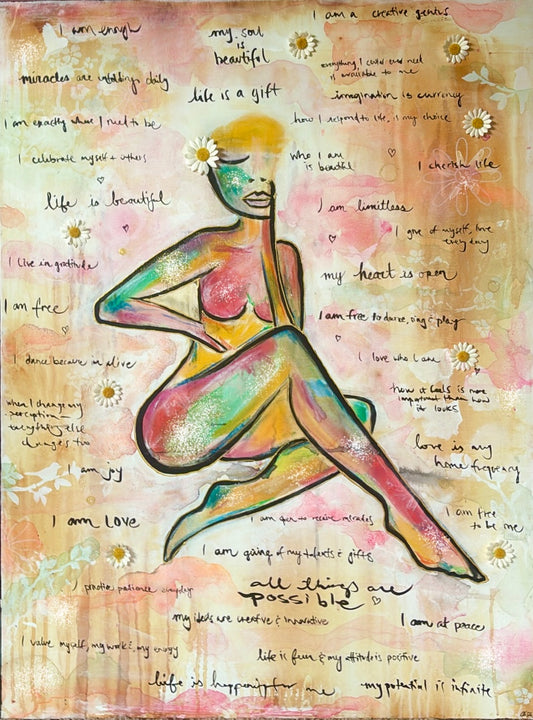 I am enough
my soul
is
beautiful
I am a creative genius
everything I could ever need
is available to me
miracles are unfolding daily
life is a gift
imagination is currency
I am exactly where I need to be
how I respond to life, is my choice
I celebrate myself + others
who I am
is beautiful
I cherish life
life is beautiful
I am limitless
I give of myself, love
every day
I live in gratitude
my heart is open
I am free
I am free to dance, sing & play
I dance because im alive
I love who I am
when I change my
perception —
everything else
changes too
how it feels is more
important than how
it looks
love is my
home frequency
I am joy
I am LOVE
I am open to receive miracles
I am free
to be me
I am giving of my talents & gifts
I practice patience everyday
all things are
possible
my ideas are creative & innovative
I am at peace
I value myself, my work &, my energy
life is fun & my attitude is positive
life is happening for me
my potential is infinite